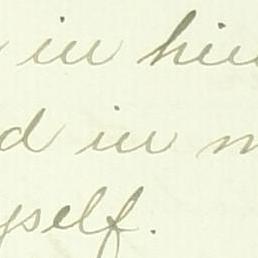 in him
d in m
yself.